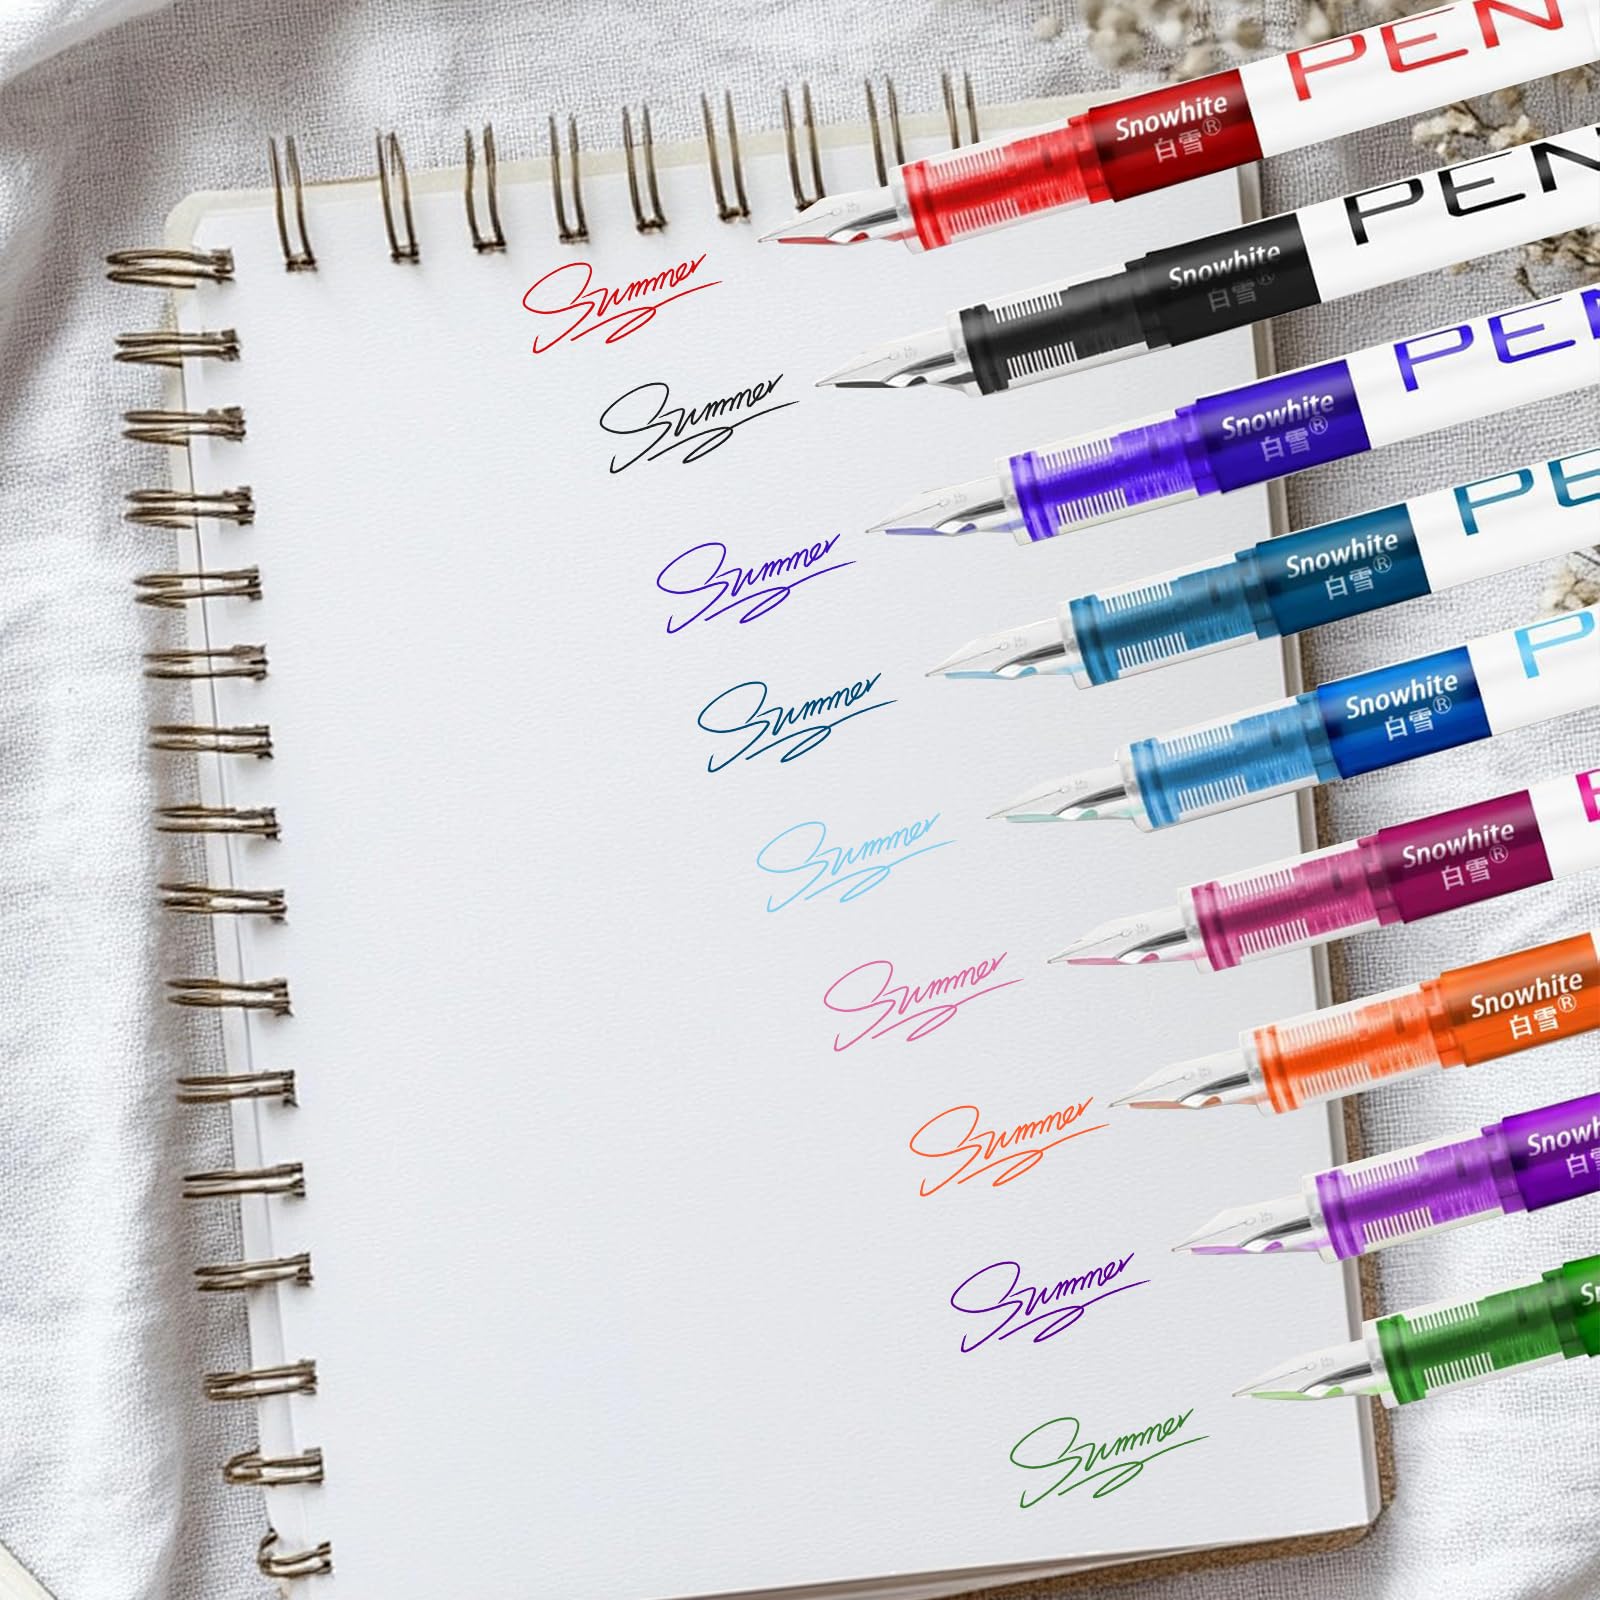 PEN
Snowhite
白雪®
Summer
PEN
Snowhite
白雪®
Summer
PEN
Snowhite
白雪®
Summer
PE
Snowhite
白雪®
Summer
P
Snowhite
白雪®
Summer
Snowhite
白雪®
Summer
Snowhite
白雪®
Summer
Snowh
白雪
Summer
Sn
Summer